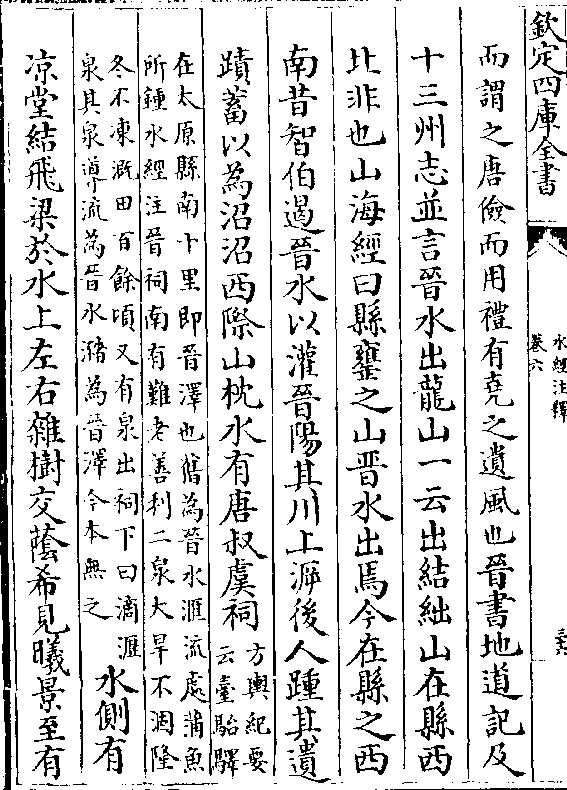 欽定四庫全書
水經注釋
卷六
而謂之唐儉而用禮有堯之遺風也晉書地道記及
十三州志並言晉水出龍山一云出結絀山在縣西
北非也山海經曰縣甕之山晉水出焉今在縣之西
南昔智伯遏晉水以灌晉陽其川上溯後人踵其遺
蹟蓄以為沼沼西際山枕水有唐叔虞祠
方輿紀要
云臺駘驛
在太原縣南十里即晉澤也舊為晉水滙流處蒲魚
所鍾水經注晉祠南有難老善利二泉大旱不涸隆
冬不凍溉田百餘頃又有泉出祠下曰滴瀝
泉其泉導流為晉水瀦為晉澤今本無之
水側有
凉堂結飛梁於水上左右雜樹交蔭希見曦景至有